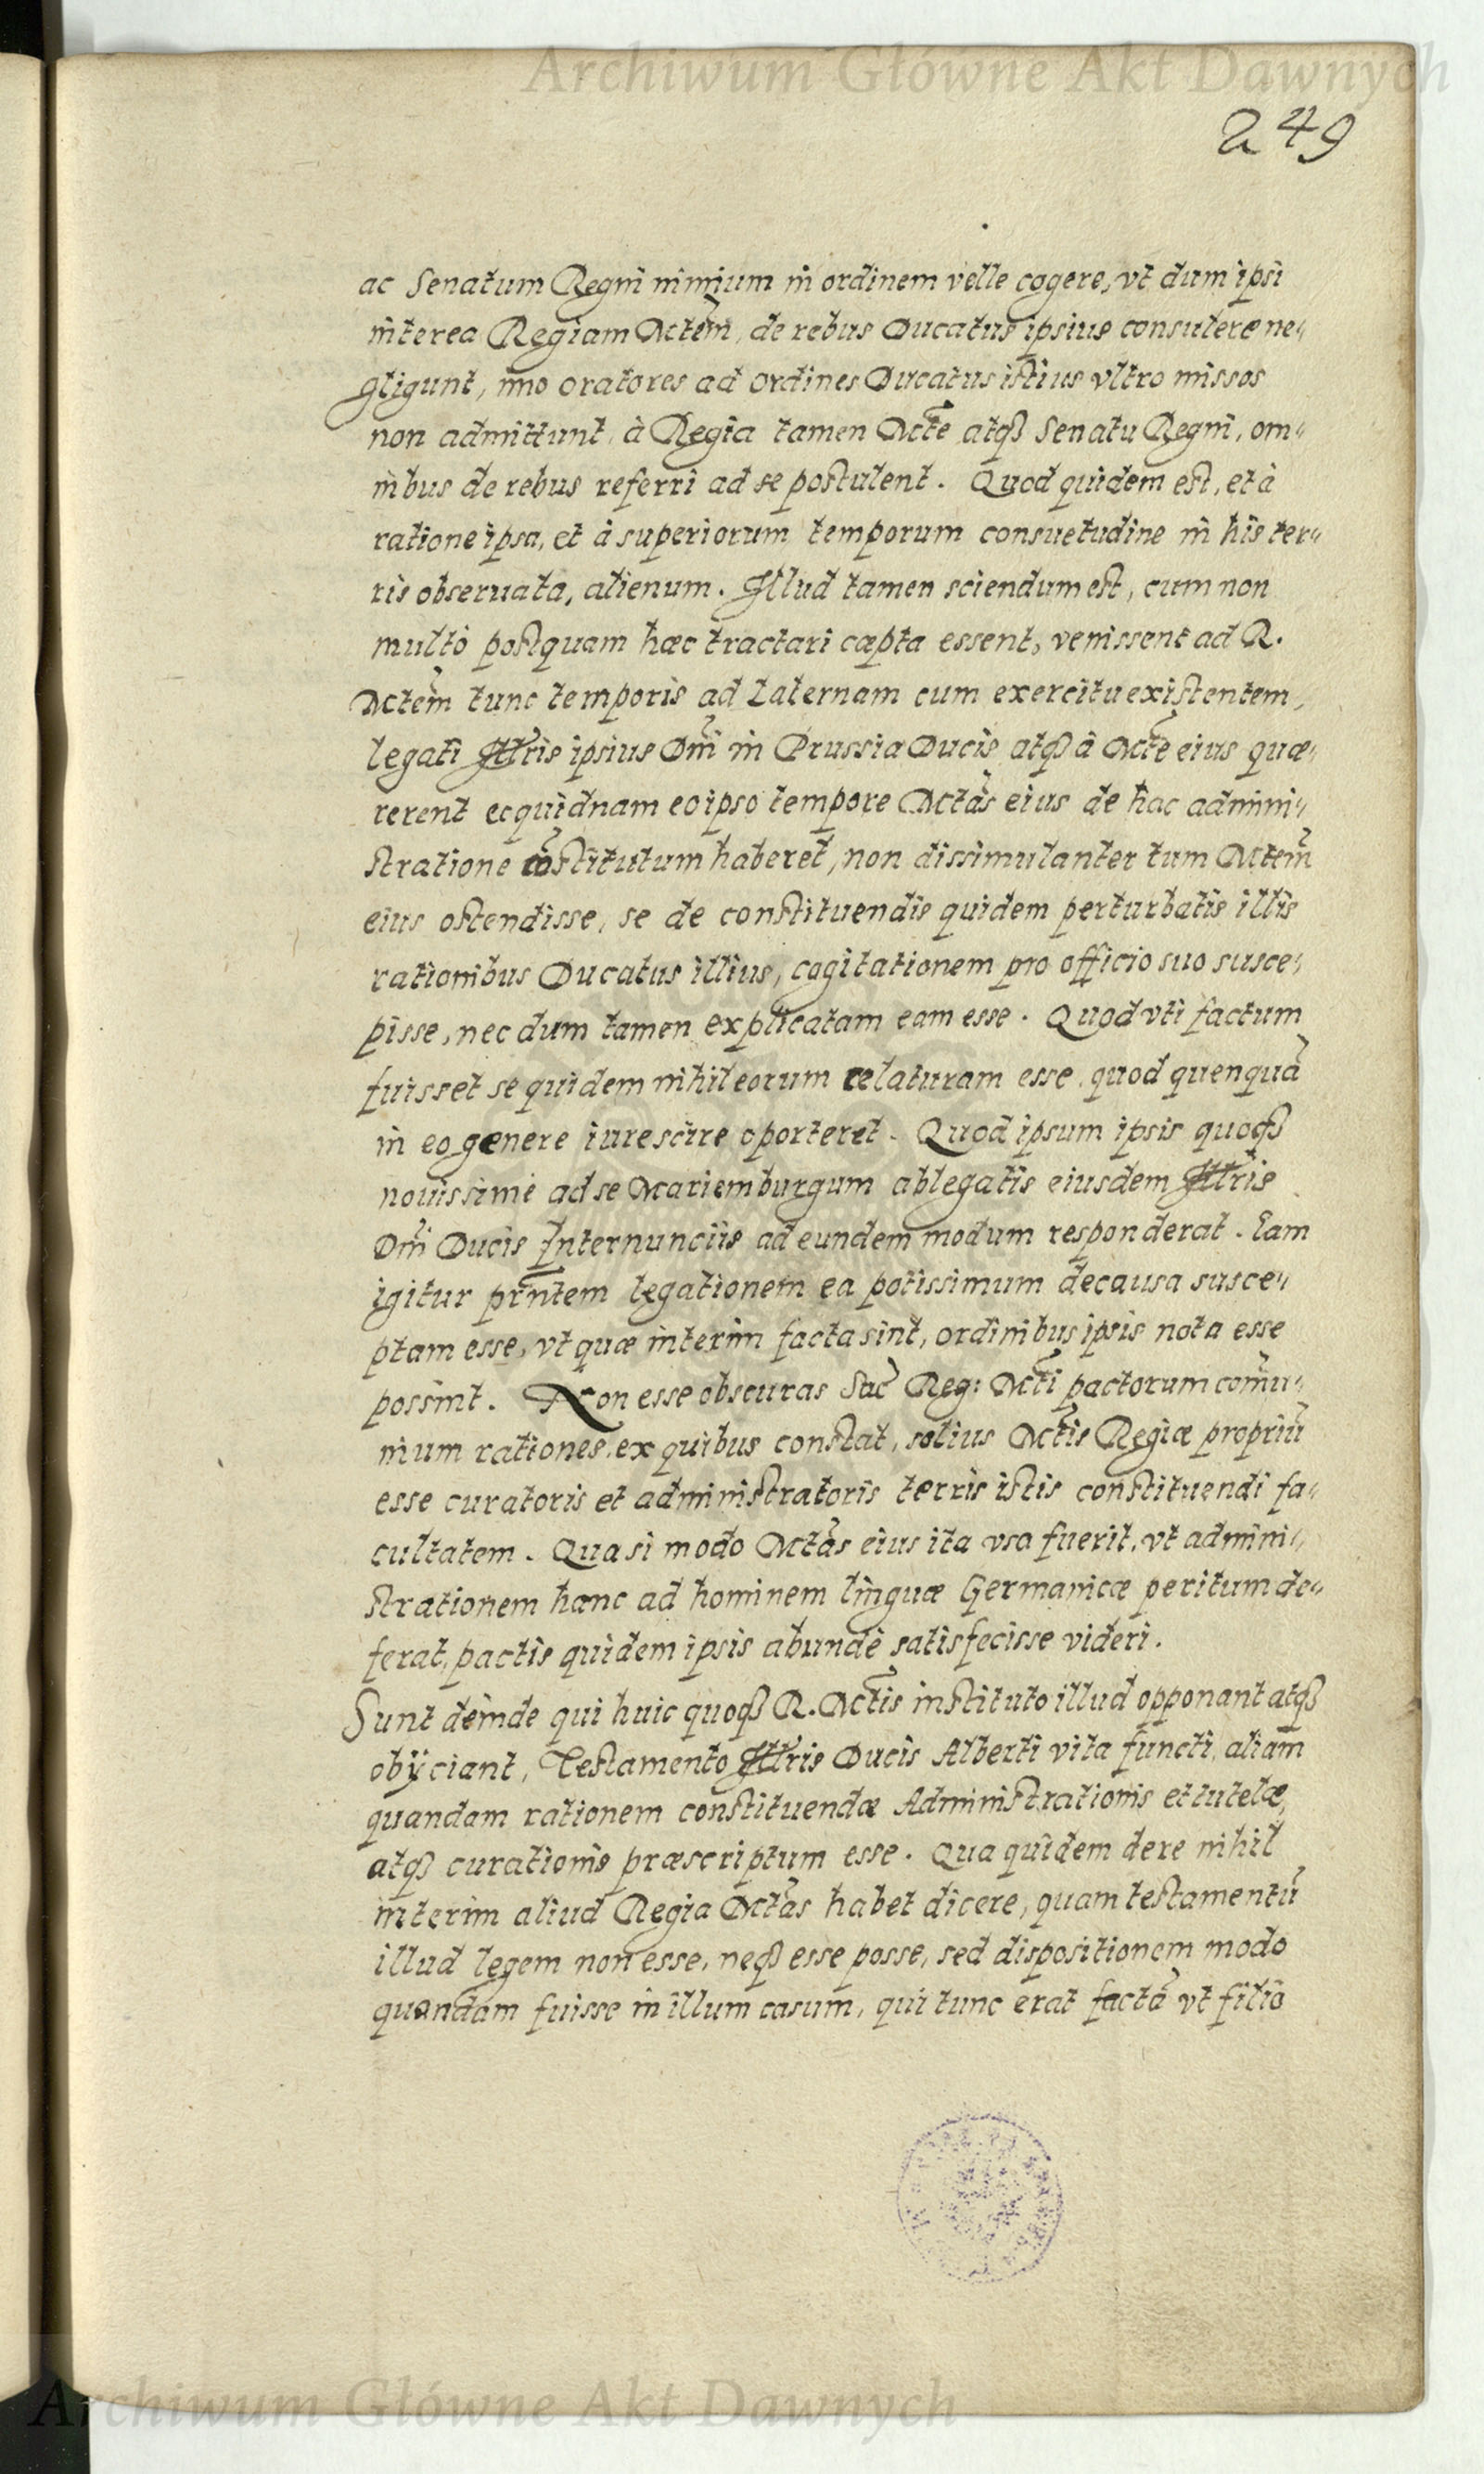 Archiwum Główne Akt Dawnych
249
ac Senatum Regni nimium in ordinem velle cogere, vt dum ipsi
interea Regiam Mctem, de rebus Ducatus ipsius consulere ne„
gligunt, imo oratores ad ordines Ducatus istius vltro missos
non admittunt, à Regia tamen Mcte atqß Senatu Regni, om„
nibus de rebus referri ad se postulent. Quod quidem est, et à
ratione ipsa, et à superiorum temporum consuetudine in his ter„
ris obseruata, alienum. Illud tamen sciendum est, cum non
multò postquam hæc tractari cæpta essent, venissent ad R.
Mctem tunc temporis ad Laternam cum exercitu existentem,
legati Illris ipsius Dni in Prussia Ducis atqß à Mcte eius quæ„
rerent ecquidnam eo ipso tempore Mctas eius de hac admini„
stratione cõstitutum haberet, non dissimulanter tum Mctem
eius ostendisse, se de constituendis quidem perturbatis illis
rationibus Ducatus illius, cogitationem pro officio suo susce„
pisse, nec dum tamen explicatam eam esse. Quod vti factum
fuisset se quidem nihil eorum celaturam esse, quod quenquã
in eo genere iure scire oporteret. Quod ipsum ipsis quoqß
nouissimè ad se Mariemburgum ablegatis eiusdem Illris
Dni Ducis Internuncijs ad eundem modum responderat. Eam
igitur prntem legationem ea potissimum de causa susce„
ptam esse, vt quæ interim facta sint, ordinibus ipsis nota esse
possint. Non esse obscuras Sac Reg: Mcti pactorum comũ„
nium rationes, ex quibus constat, solius Mctis Regiæ propriũ
esse curatoris et administratoris terris istis constituendi fa„
cultatem. Qua si modo Mctas eius ita vsa fuerit, vt admini„
strationem hanc ad hominem linguæ Germanicæ peritum de„
ferat, pactis quidem ipsis abundè satisfecisse videri.
Sunt deinde qui huic quoqß R. Mctis instituto illud opponant atqß
obijciant, Testamento Illris Ducis Alberti vita functi, aliam
quandam rationem constituendæ Administrationis et tutelæ,
atqß curationis præscriptum esse. Qua quidem de re nihil
interim aliud Regia Mctas habet dicere, quam testamentũ
illud legem non esse, neqß esse posse, sed dispositionem modo
quandam fuisse in illum casum, qui tunc erat factã vt filio
Archiwum Główne Akt Dawnych